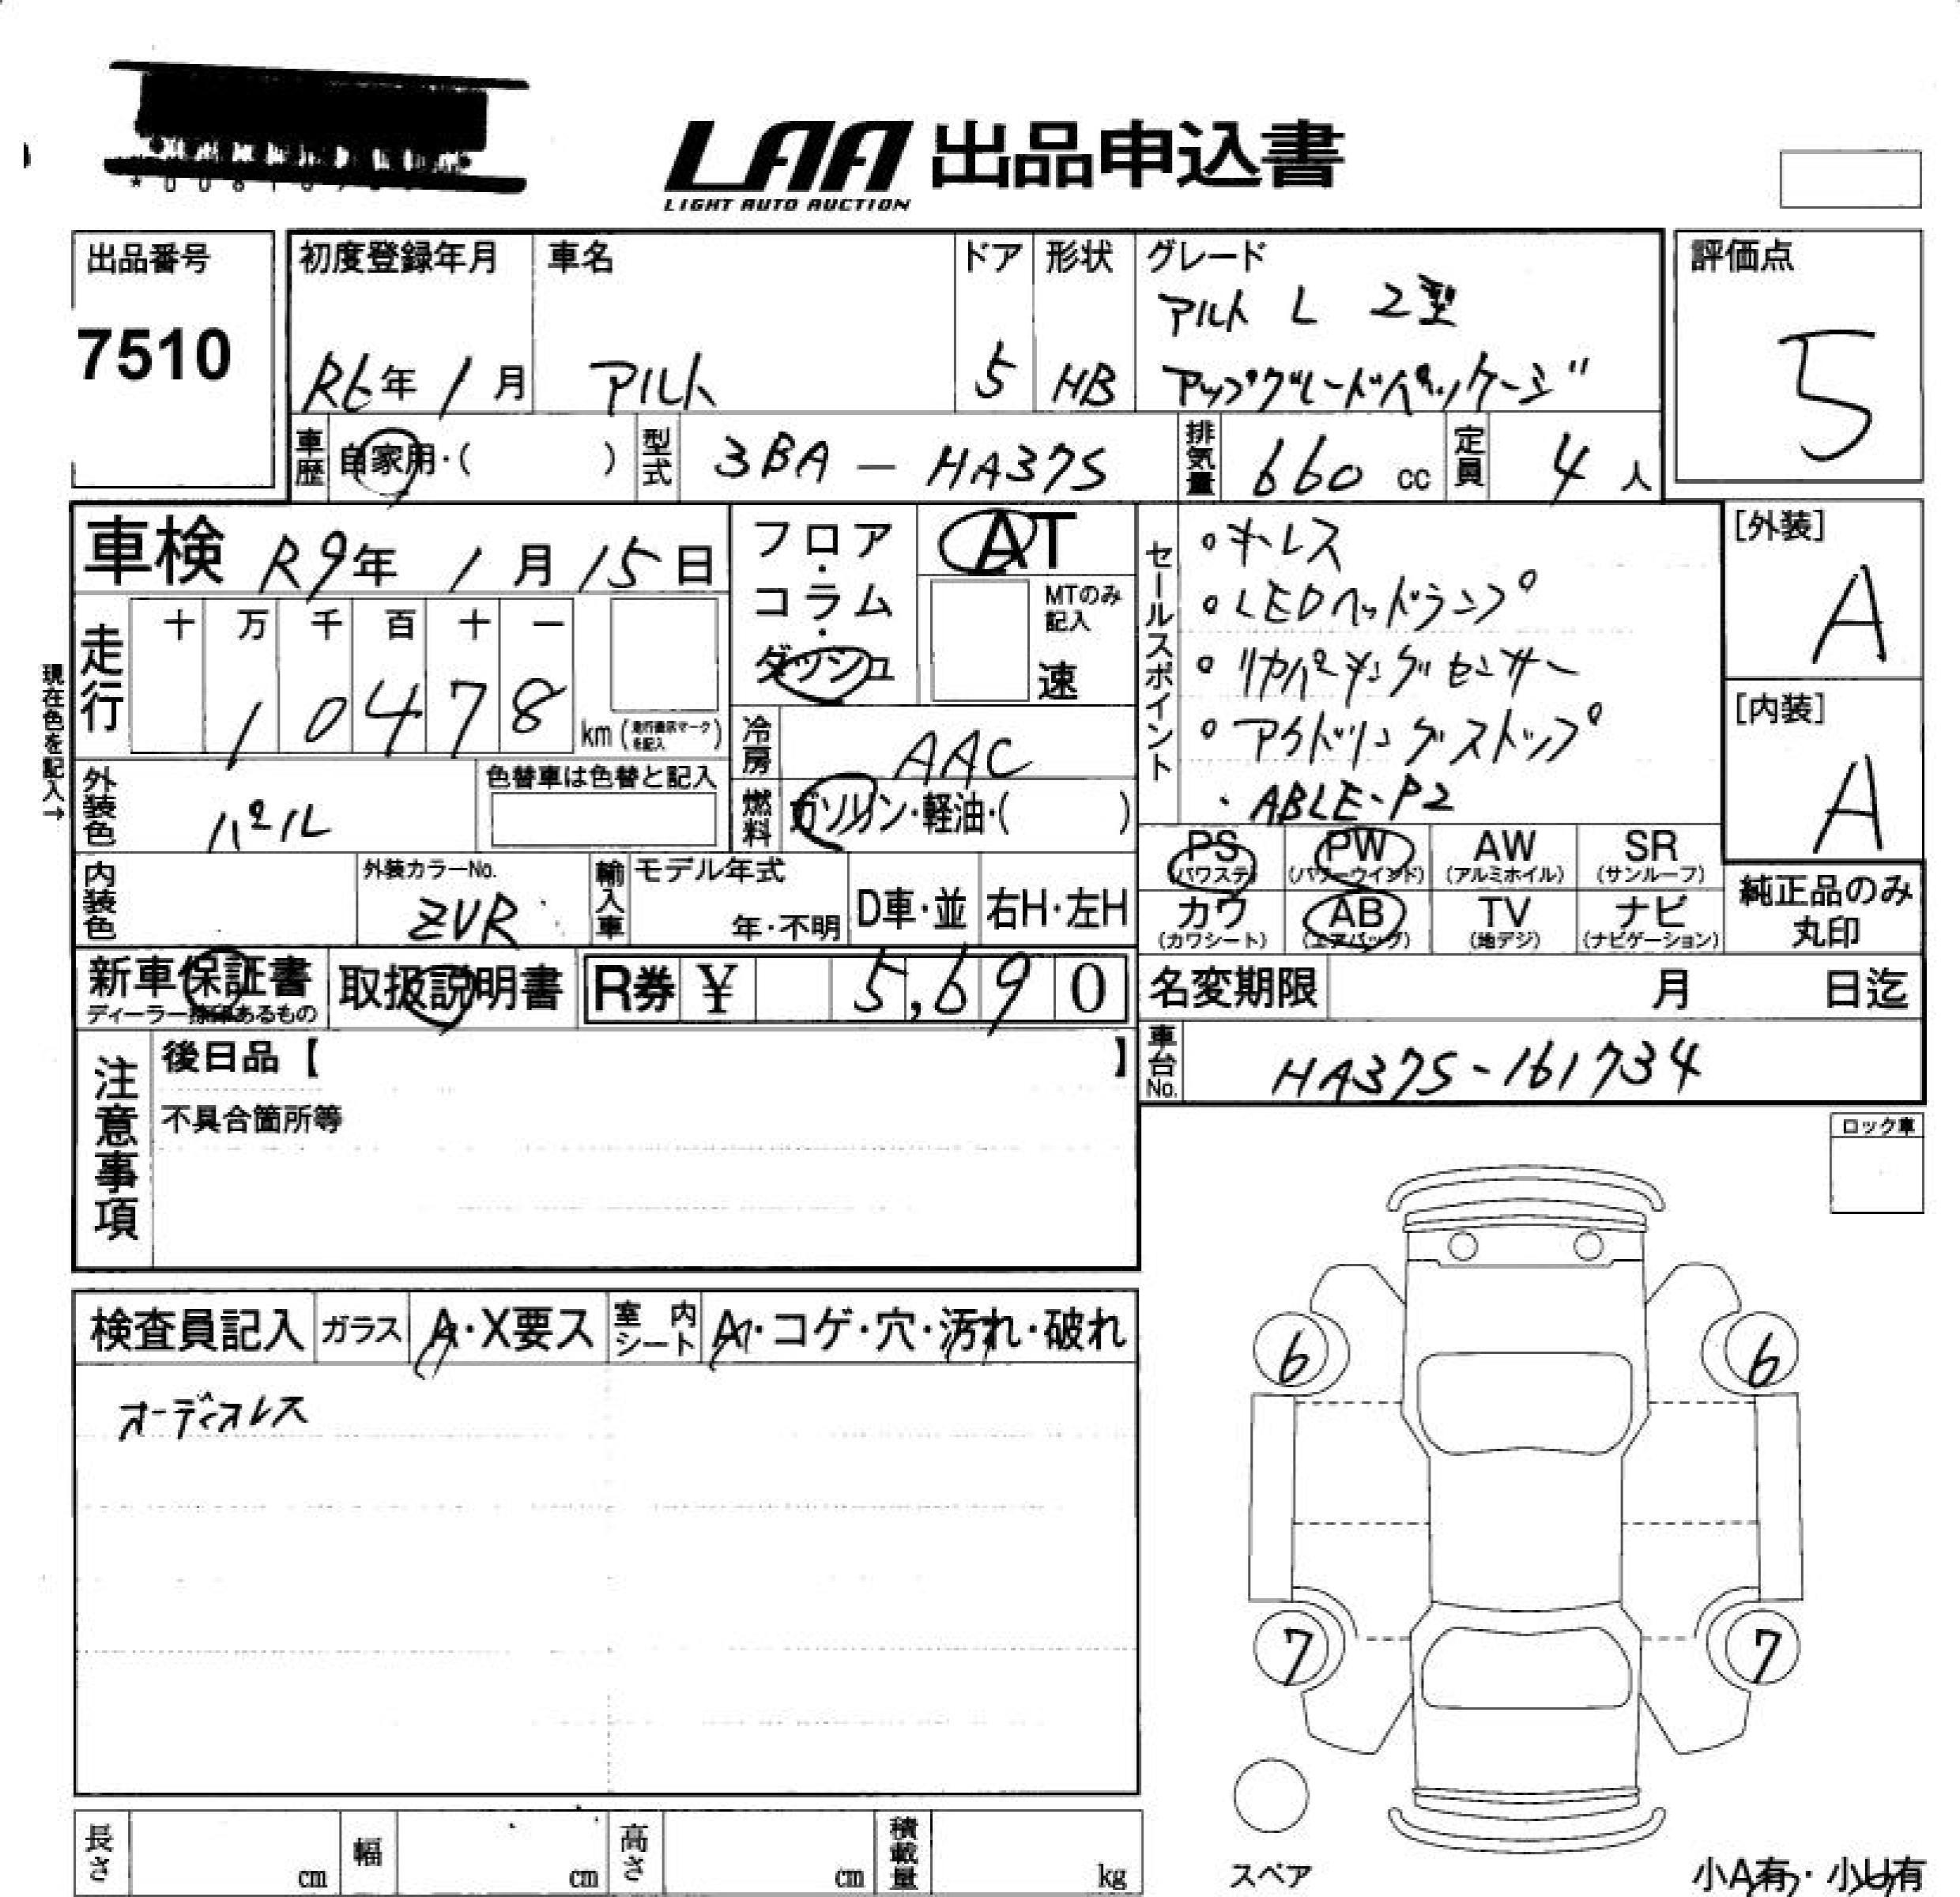 LAA 出品申込書
LIGHT AUTO AUCTION
出品番号
7510
初度登録年月
R6年 1月
車名
アルト
ドア
5
形状
HB
グレード
アルト L 2型
アップグレードパッケージ
評価点
5
車歴
自家用・( )
型式
3BA - HA37S
排気量
660 cc
定員
4 人
車検 R9年 1月 15日
走行
十 万 千 百 十 一
1 0 4 7 8
km (走行曲示マーク を記入)
現在色を記入→
外装色
パール
色替車は色替と記入
内装色
外装カラーNo.
ZVR
輸入車
モデル年式
年・不明
D車・並
右H・左H
フロア・コラム・ダッシュ
AT
MTのみ記入
速
冷房
AAC
燃料
ガソリン・軽油・( )
セールスポイント
・キーレス
・LEDヘッドランプ
・リヤパーキングセンサー
・アイドリングストップ
・ABLE-P2
[外装]
A
[内装]
A
PS (パワステ)
PW (パワーウインド)
AW (アルミホイル)
SR (サンルーフ)
カワ (カワシート)
AB (エアバッグ)
TV (地デジ)
ナビ (ナビゲーション)
純正品のみ
丸印
新車保証書
取扱説明書
R券 ¥ 5,690
名変期限 月 日迄
車台No.
HA37S-161734
注意事項
後日品【 】
不具合箇所等
ロック車
検査員記入
ガラス
A・X要ス
室内シート
A・コゲ・穴・汚れ・破れ
オーディオレス
6
6
7
7
スペア
長さ cm
幅 cm
高さ cm
積載量 kg
小A有・小U有